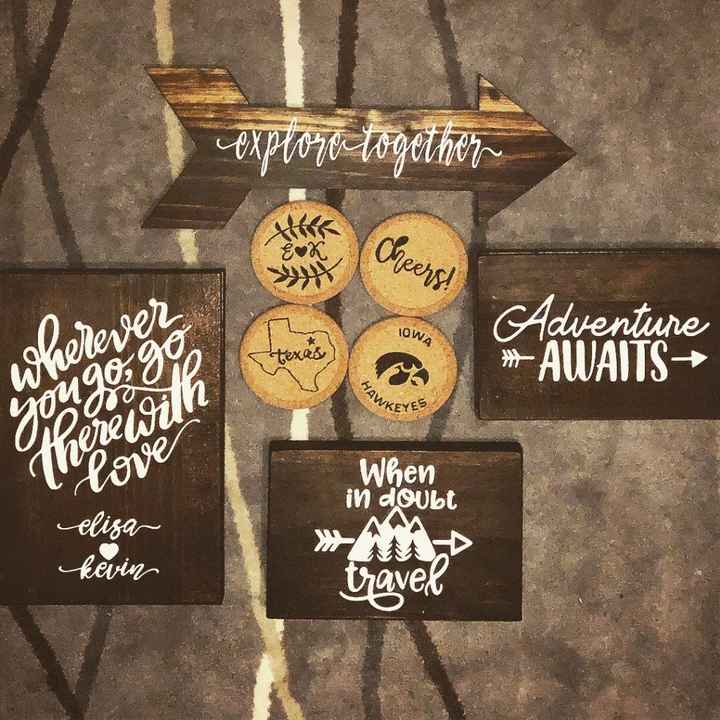 explore together
E♥K
Cheers!
texas
IOWA
HAWKEYES
wherever
you go, go
there with
love
elisa
kevin
Adventure
AWAITS
When
in doubt
travel